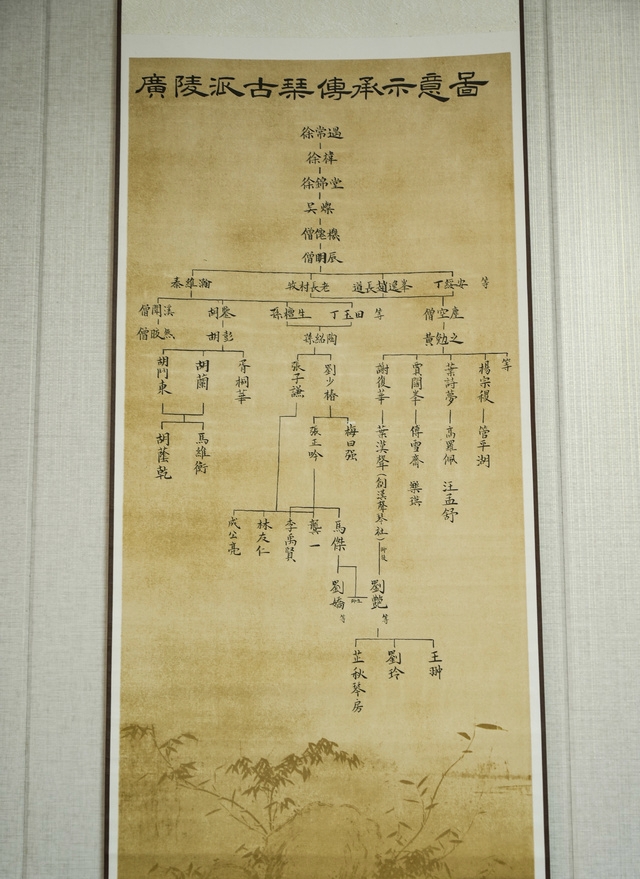 廣陵派古琹傳承示意啚
徐常遇
徐禕
徐錦堂
吳燦
僧僊機
僧明辰
秦維瀚
牧村長老
丁綏安
等
僧聞溪
胡鑒
孫檀生
丁玉田
等
僧空塵
胡彭
孫紹陶
黃勉之
胡鬥東
胡蘭
胥桐華
張子謙
劉少椿
謝復華
賈闊峯
葉詩夢
楊宗稷
等
胡蔭乾
馬維衡
張正吟
梅曰强
葉漢聲(創漢聲琴社)
傅雪齋
樂瑛
高羅佩
汪孟舒
管平湖
成公亮
林友仁
李禹賢
龔一
馬傑
劉嬌
等
劉艷
等
芷秋琴房
劉玲
王翀